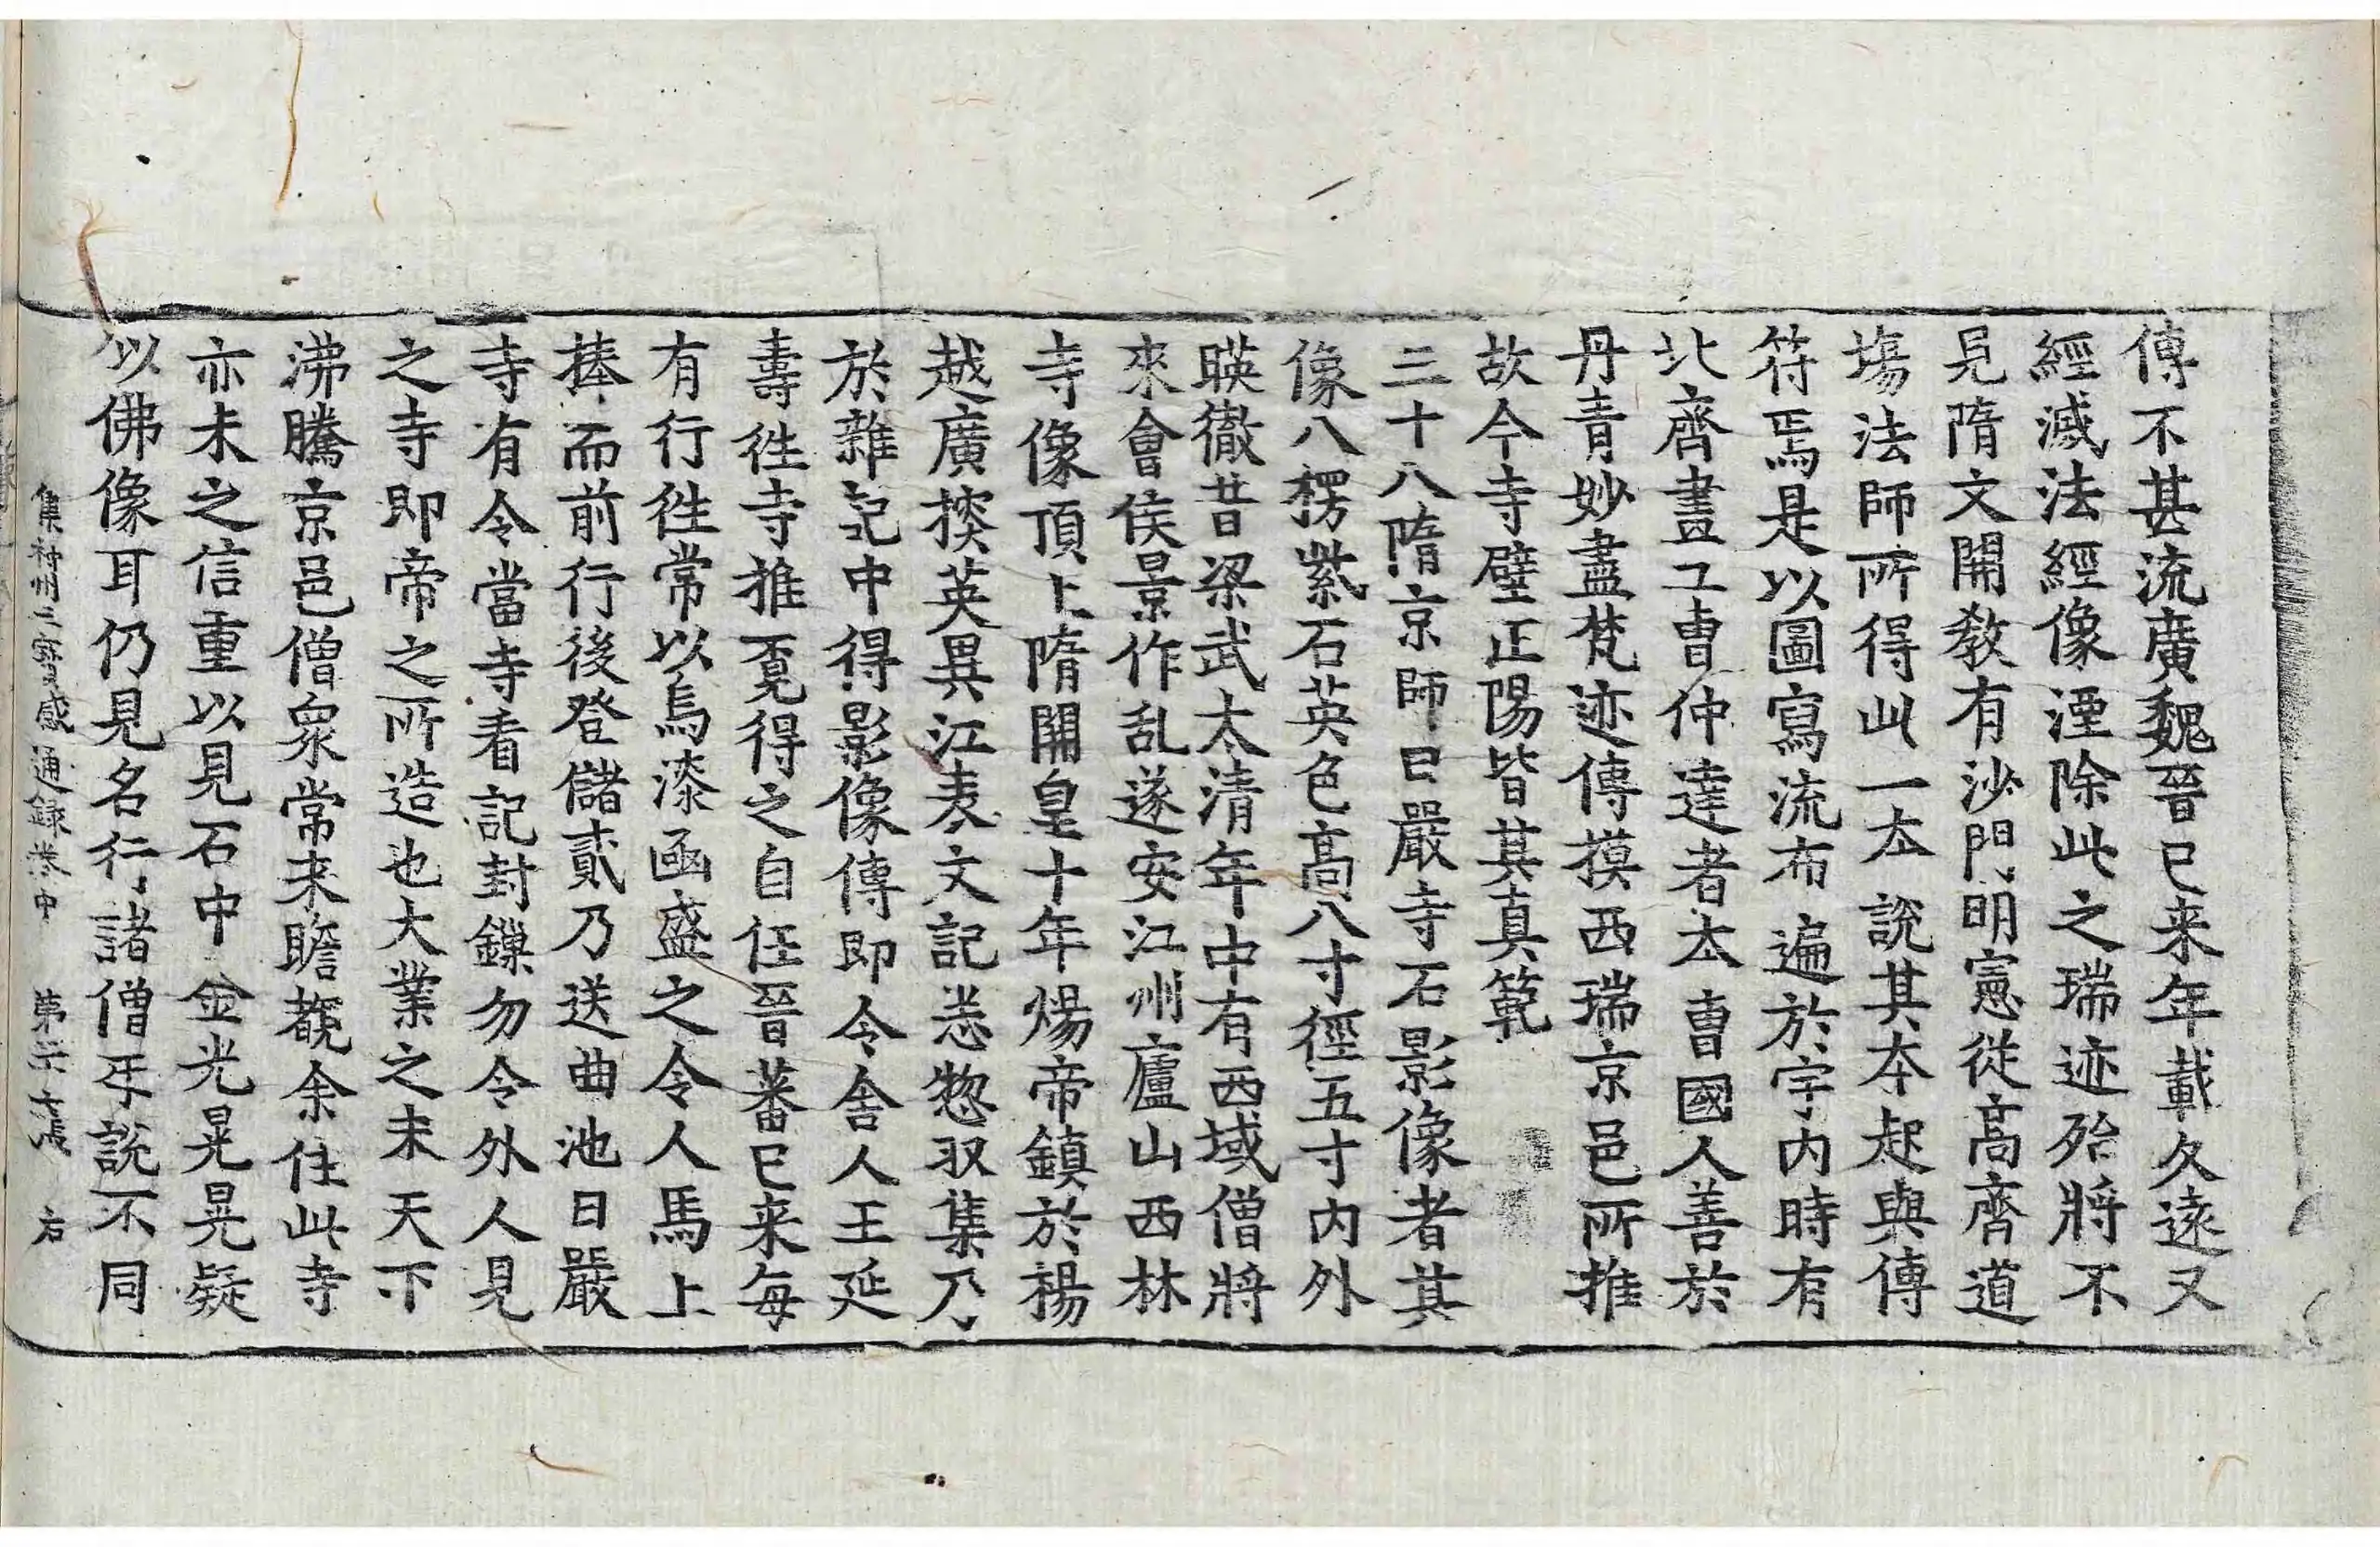 傳不甚流廣魏晉已来年載久遠又
經滅法經像湮除此之瑞迹殆將不
見隋文開敎有沙門明憲從高齊道
塲法師所得此一夲說其夲起與傳
符焉是以圖寫流布遍於宇内時有
北齊畫工曺仲達者夲曺國人善於
丹青妙盡梵迹傳摸西瑞京邑所推
故今寺壁正陽皆其真範
三十八隋京師日嚴寺石影像者其
像八楞紫石英色高八寸徑五寸内外
暎徹昔梁武太清年中有西域僧將
來會侯景作乱遂安江州廬山西林
寺像頂上隋開皇十年煬帝鎮於楊
越廣搜英異江表文記悉惣収集乃
於雜記中得影像傳即令舍人王延
壽徃寺推覓得之自任晉蕃已来每
有行徃常以烏漆函盛之令人馬上
捧而前行後登儲貳乃送曲池日嚴
寺有令當寺看記封鏁勿令外人見
之寺即帝之所造也大業之末天下
沸騰京邑僧衆常来瞻覩余住此寺
亦未之信重以見石中金光晃晃疑
以佛像耳仍見名行諸僧互說不同
集神州三寳感通録卷中 第三十張 右